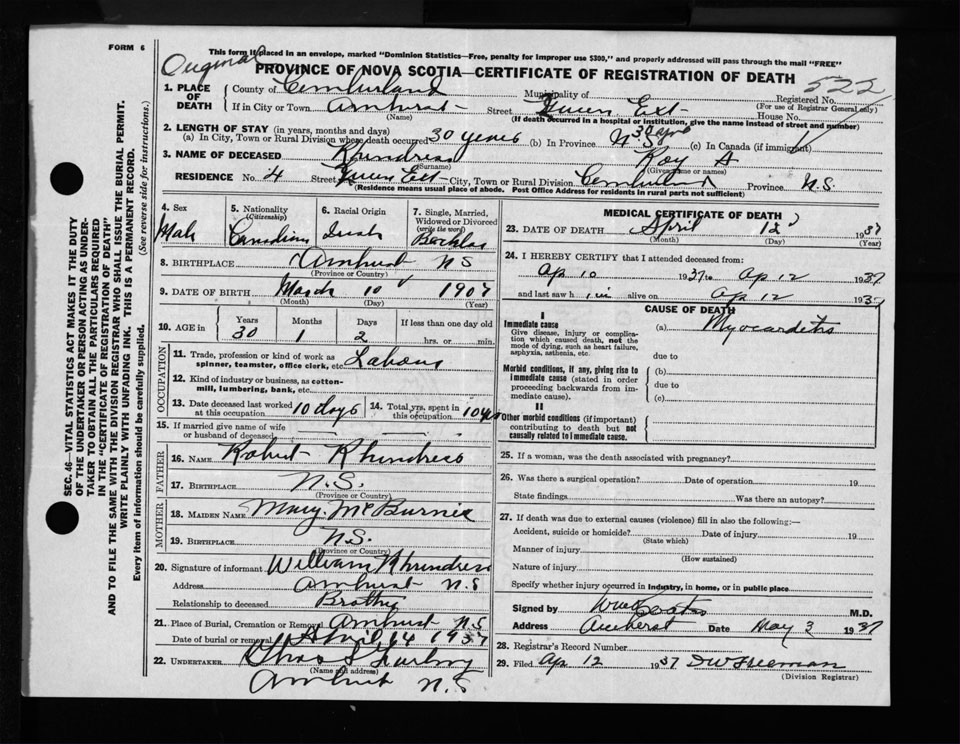 FORM 6
This form if placed in an envelope, marked "Dominion Statistics—Free, penalty for improper use $300," and properly addressed will pass through the mail "FREE"
Original
PROVINCE OF NOVA SCOTIA—CERTIFICATE OF REGISTRATION OF DEATH
522
1. PLACE OF DEATH
County of Cumberland Municipality of Registered No.
(For use of Registrar General only)
If in City or Town Amherst Street Queen East House No.
(Name)
(If death occurred in a hospital or institution, give the name instead of street and number)
2. LENGTH OF STAY (in years, months and days)
(a) In City, Town or Rural Division where death occurred 30 years (b) In Province (c) In Canada (if immigrant)
3. NAME OF DECEASED Rhindress Roy A
(Surname) (Given name or names)
RESIDENCE No. 4 Street Queen East City, Town or Rural Division Cumberland Province N.S.
(Residence means usual place of abode. Post Office Address for residents in rural parts not sufficient)
4. Sex Male
5. Nationality (Citizenship) Canadian
6. Racial Origin
7. Single, Married, Widowed or Divorced (write the word) Bachelor
8. BIRTHPLACE Amherst N S
(Province or Country)
9. DATE OF BIRTH March 10 1907
(Month) (Day) (Year)
10. AGE in Years 30 Months 1 Days 2 If less than one day old hrs. or min.
OCCUPATION
11. Trade, profession or kind of work as spinner, teamster, office clerk, etc. Labour
12. Kind of industry or business, as cotton-mill, lumbering, bank, etc.
13. Date deceased last worked at this occupation 10 days
14. Total yrs. spent in this occupation 10 yrs
15. If married give name of wife or husband of deceased
FATHER
16. NAME Robert Rhindress
17. BIRTHPLACE N.S.
(Province or Country)
MOTHER
18. MAIDEN NAME Mary McBurnie
19. BIRTHPLACE N.S.
(Province or Country)
20. Signature of informant William Rhindress
Address Amherst N.S
Relationship to deceased Brother
21. Place of Burial, Cremation or Removal Amherst N.S
Date of burial or removal April 14 1937
22. UNDERTAKER Chas S
(Name and address)
Amherst N.S
MEDICAL CERTIFICATE OF DEATH
23. DATE OF DEATH April 12 1937
(Month) (Day) (Year)
24. I HEREBY CERTIFY that I attended deceased from:
Ap 10 1937 to Ap 12 1937
and last saw h im alive on Ap 12 1937
CAUSE OF DEATH
I
Immediate cause (a) Myocarditis
Give disease, injury or complication which caused death, not the mode of dying, such as heart failure, asphyxia, asthenia, etc.
due to
Morbid conditions, if any, giving rise to immediate cause (stated in order proceeding backwards from immediate cause).
(b)
due to
(c)
II
Other morbid conditions (if important) contributing to death but not causally related to immediate cause.
25. If a woman, was the death associated with pregnancy?
26. Was there a surgical operation? Date of operation 19
State findings Was there an autopsy?
27. If death was due to external causes (violence) fill in also the following:—
Accident, suicide or homicide? Date of injury 19
(State which)
Manner of injury
(How sustained)
Nature of injury
Specify whether injury occurred in industry, in home, or in public place
Signed by M.D.
Address Amherst Date May 3 1937
28. Registrar's Record Number
29. Filed Ap 12 1937 Freeman
(Division Registrar)
SEC. 46—VITAL STATISTICS ACT MAKES IT THE DUTY
OF THE UNDERTAKER OR PERSON ACTING AS UNDER-
TAKER TO OBTAIN ALL THE PARTICULARS REQUIRED
IN THE "CERTIFICATE OF REGISTRATION OF DEATH"
AND TO FILE THE SAME WITH THE DIVISION REGISTRAR WHO SHALL ISSUE THE BURIAL PERMIT.
WRITE PLAINLY WITH UNFADING INK. THIS IS A PERMANENT RECORD.
Every item of information should be carefully supplied. (See reverse side for instructions.)